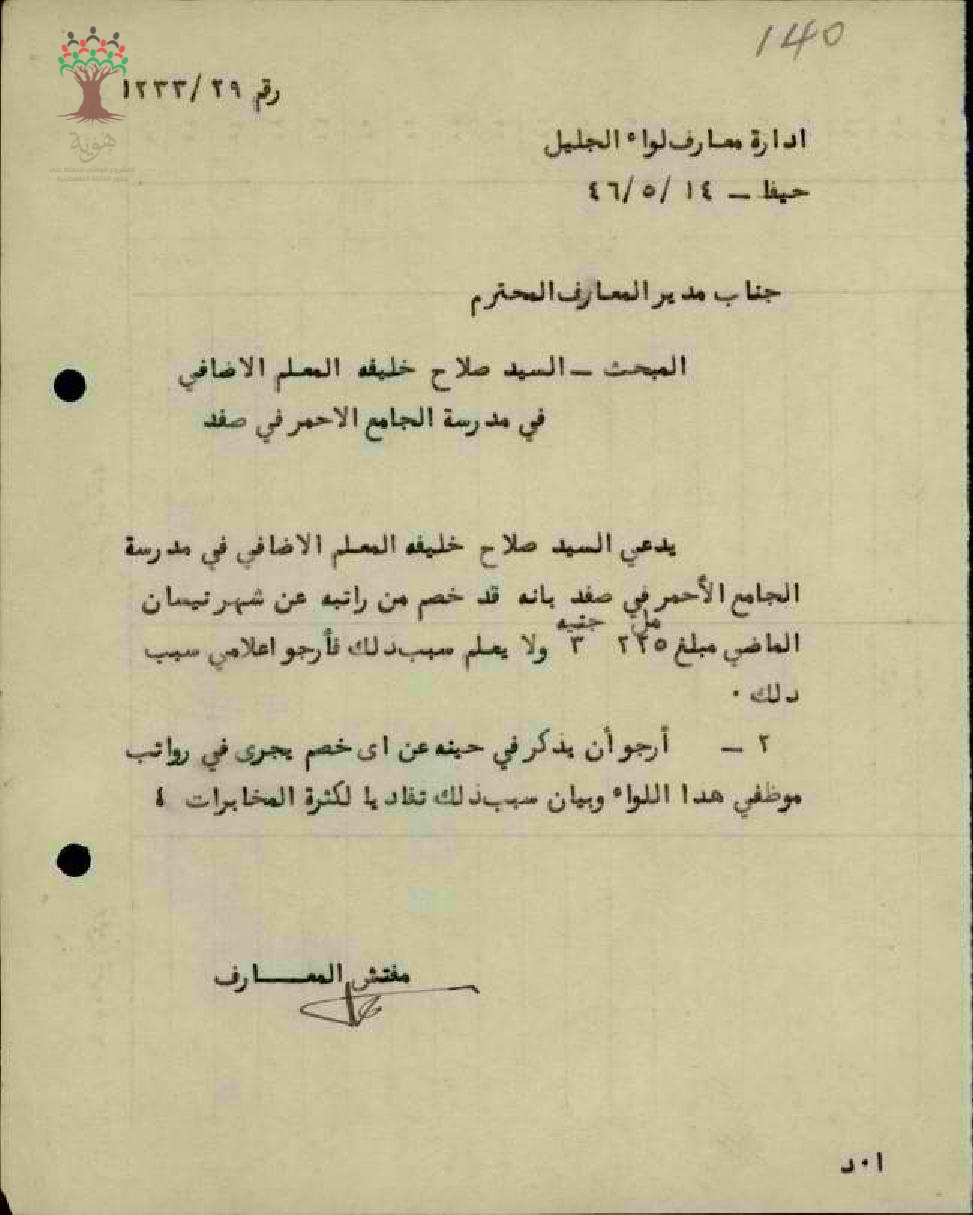 140
رقم ٢٩ /١٢٣٣
هوية
ادارة معارف لواء الجليل
حيفا - ١٤ /٥ /٤٦
جناب مدير المعارف المحترم
المبحث - السيد صلاح خليفه المعلم الاضافي
في مدرسة الجامع الاحمر في صفد
يدعي السيد صلاح خليفه المعلم الاضافي في مدرسة
الجامع الأحمر في صفد بانه قد خصم من راتبه عن شهر نيسان
مل جنيه
الماضي مبلغ ٢٢٥ ٣ ولا يعلم سبب ذلك فأرجو اعلامي سبب
دلك .
٢ - أرجو أن يذكر في حينه عن اى خصم يجرى في رواتب
موظفي هدا اللواء وبيان سبب ذلك تفاديا لكثرة المخابرات ٤
مفتش المعـــارف
ا٠د